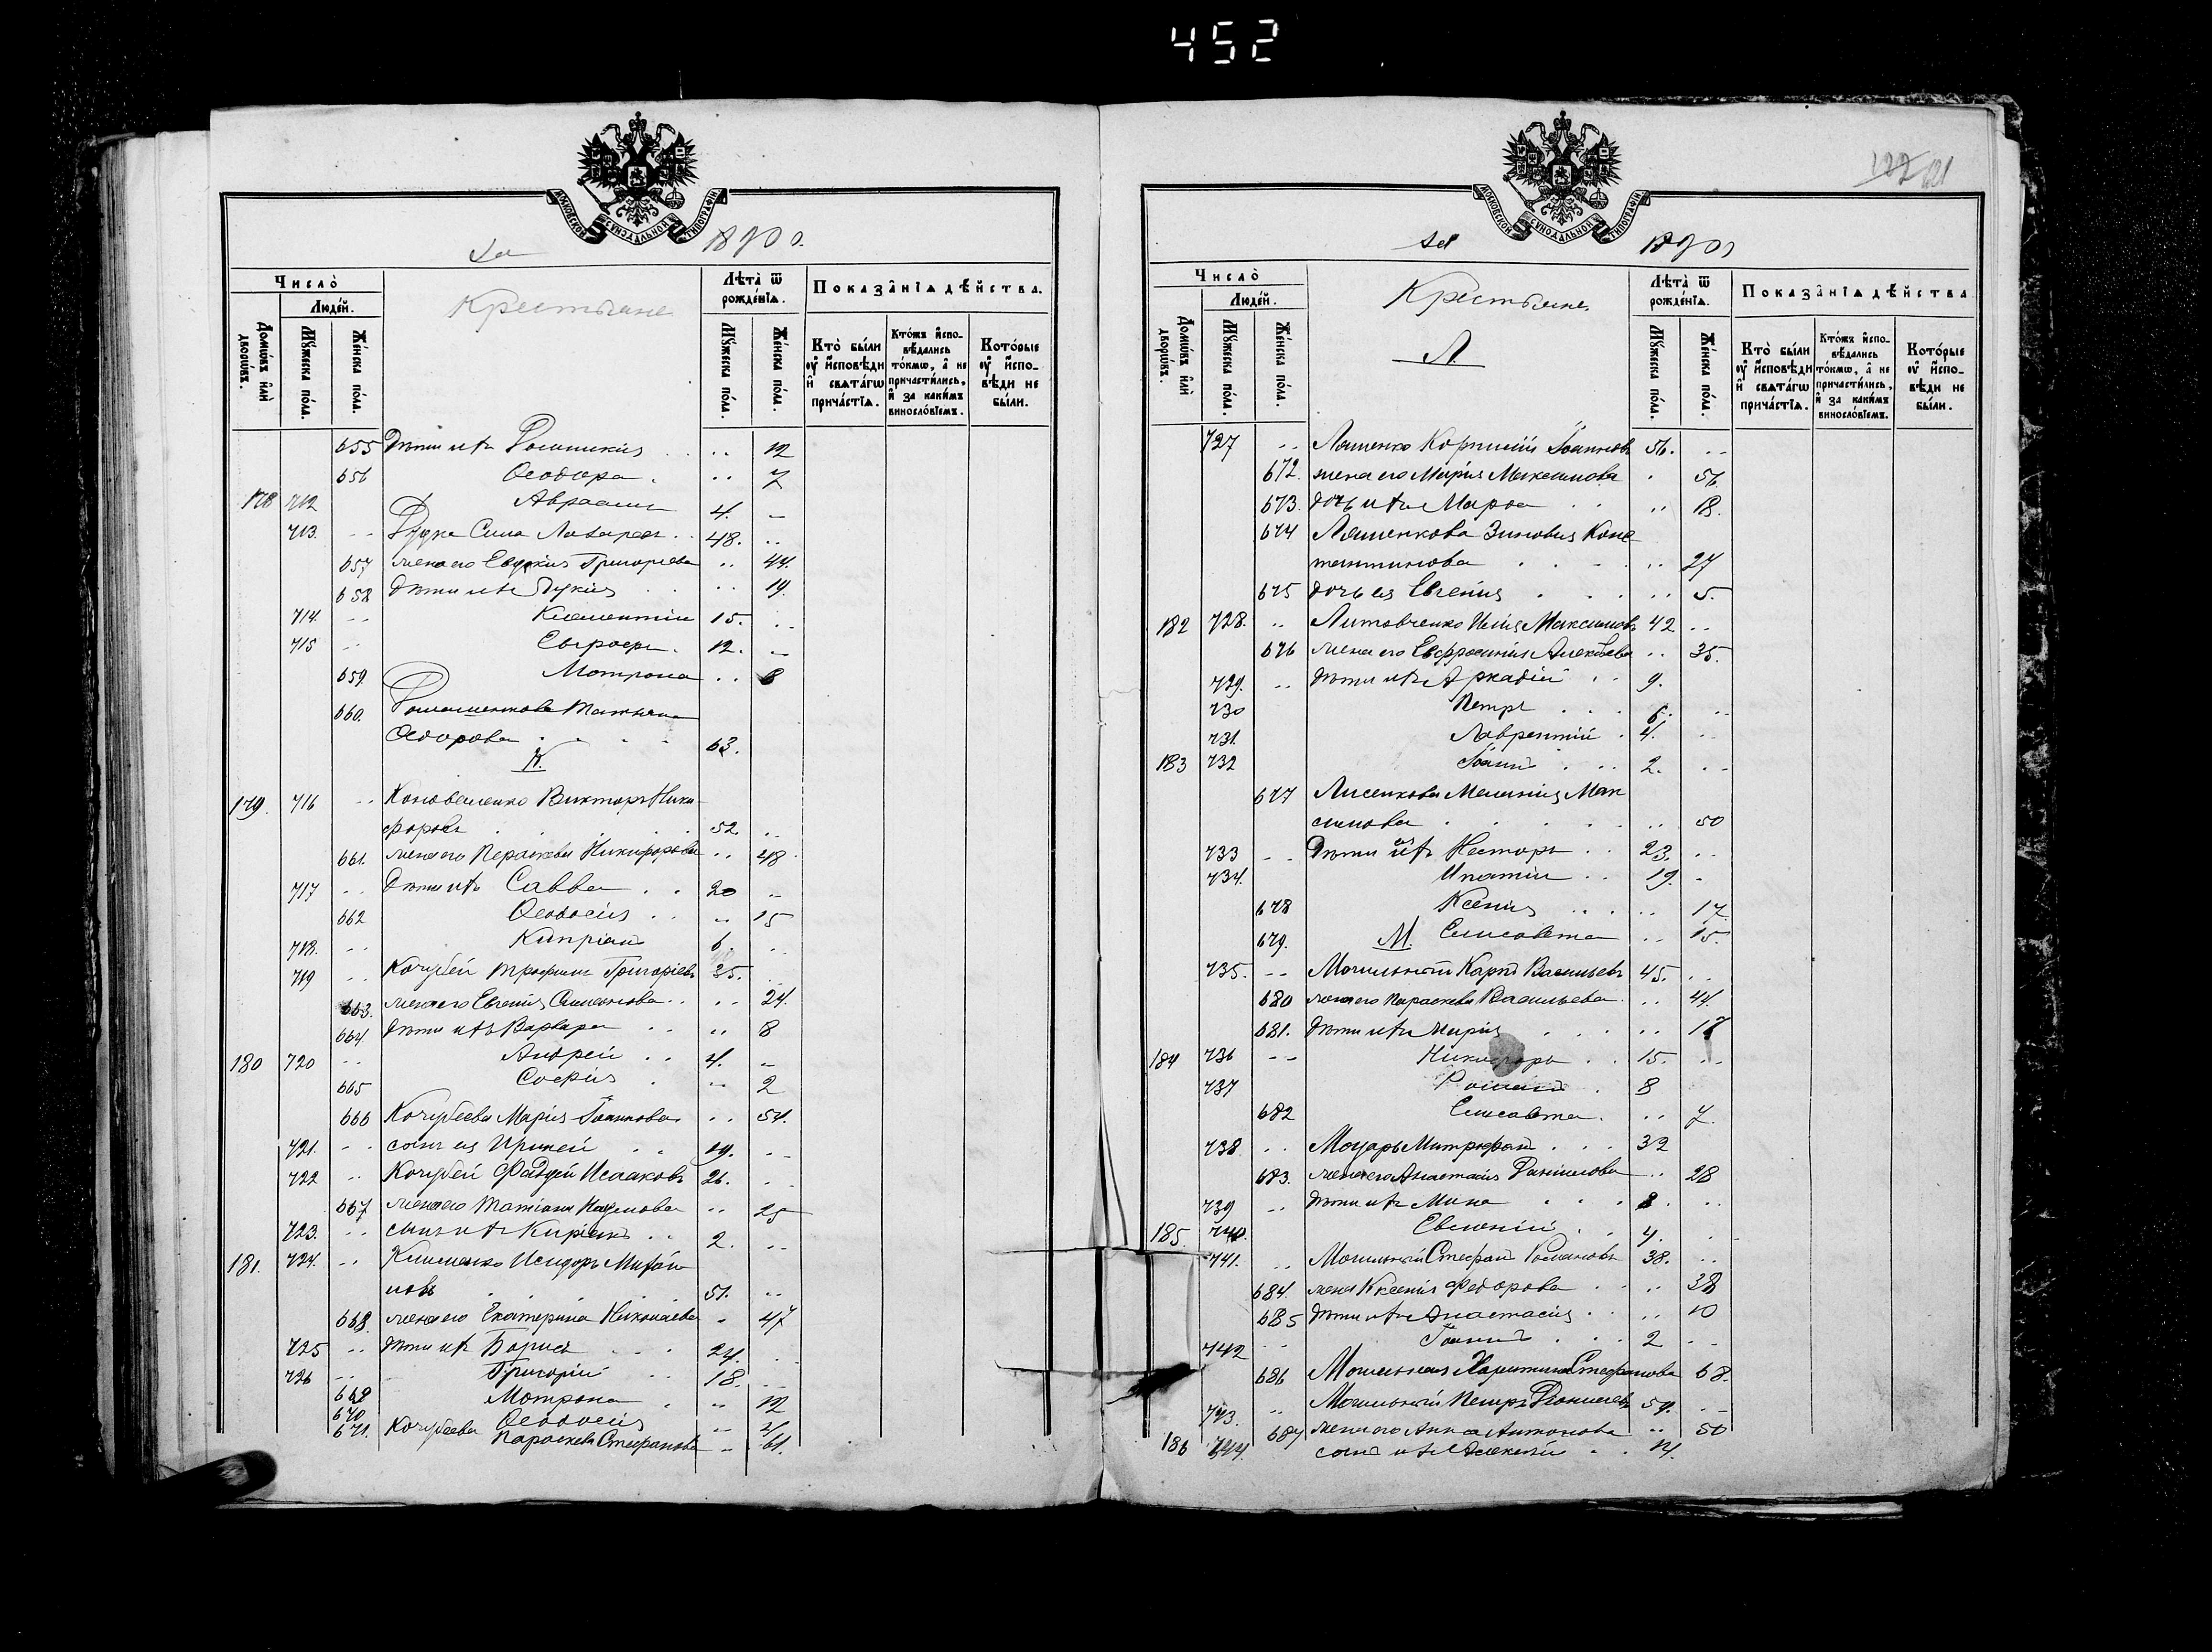 452
МОСКОВСКОЙ СѴНОДАЛЬНОЙ ТИПОГРАФІИ
за 1890 г.
Число̀
Людéй.
Крестьяне
Лѣта̀ ѿ рождéнїѧ.
Показа̑нїѧ дѣ́йства.
Домѡ́въ и҆лѝ дворѡ́въ.
Мꙋ́жеска по́ла.
Же́нска по́ла.
Мꙋ́жеска по́ла.
Же́нска по́ла.
Кто̀ бы́ли оу҆ и҆сповѣди и҆ свѧта́гѡ прича́стїѧ.
Кто́жъ и҆спо-вѣдались то́кмѡ, а҆ не причасти́лись, и҆ за каки́мъ винослóвїемъ.
Кото́рые оу҆ и҆спо-вѣди не бы́ли.
655 Дѣти ихъ .. 12
656 Ѳеодора .. 7
178 712 Авраамъ 4. –
713. Рудка Сила Лазаревъ 48. ..
657 жена его Евдокія Григорьева .. 44.
658 Дѣти ихъ .. 19.
714. Климентій 15. ..
715 12. ..
659. Мотрона .. 8
660. Ромашенкова Татьяна
Ѳеодорова 63.
К.
179. 716 Коноваленко Викторъ Ники-
форовъ 52. ..
661. жена его Параскева Никифорова .. 48
717 Дѣти ихъ Савва 20 ..
662 Ѳеодосія .. 15
718. Кипріанъ 6. ..
719 Кочубей Трофимъ Григоріевъ 35. ..
663. жена его Евгенія Симеонова .. 24.
664. Дѣти ихъ Варвара .. 8
180 720 Андрей 4. –
665 Софія .. 2
666 Кочубеева Марія Іоаннова .. 54.
721. сынъ ея Ириней 19. ..
722 Кочубей Фаддей Исааковъ 26. ..
667 жена его Татіана Наумова .. 25
723. сынъ ихъ 2. ..
181. 724. Клименко Исидоръ
новъ 51. ..
668. жена его Екатерина Николаева – 47
725 Дѣти ихъ Борисъ 24. ..
726 Григорій 18. ..
669 Мотрона .. 12
670 Ѳеодосія ..
671. Кочубеева Параскева Стефанова – 61.
МОСКОВСКОЙ СѴНОДАЛЬНОЙ ТИПОГРАФІИ
122 121
за 1890 г.
Число̀
Людéй.
Крестьяне.
Лѣта̀ ѿ рождéнїѧ.
Показа̑нїѧ дѣ́йства
Домѡ́въ и҆лѝ дворѡ́въ.
Мꙋ́жеска по́ла.
Же́нска по́ла.
Л
Мꙋ́жеска по́ла.
Же́нска по́ла.
Кто̀ бы́ли оу҆ и҆сповѣди и҆ свѧта́гѡ прича́стїѧ.
Кто́жъ и҆спо-вѣдались то́кмѡ, а҆ не причасти́лись, и҆ за каки́мъ винослóвїемъ.
Кото́рые оу҆ и҆спо-вѣди не бы́ли.
727 Ляшенко Корнилій Іоанновъ 56. ..
672. жена его Марія Максимова . 56.
673. дочь ихъ Марѳа .. 18.
674 Ляшенкова Зиновія Конс-
тантинова .. 27
675 дочь ея Евгенія .. 5.
182 728. Литовченко Илія Максимовъ 42 ..
676 жена его Евфросинія Алексѣева .. 35.
729. Дѣти ихъ Аркадій 9.
730 Петръ 6. ..
731. Лаврентій 4. ..
183 732 Іоаннъ 2. ..
677 Лисенкова Меланія Мак
симова .. 50
733 Дѣти ея Несторъ 23. ..
734. Ипатій 19. –
678 Ксенія .. 17
679. М. Елисавета .. 15.
735. Могильный Карпъ Васильевъ 45. ..
680 жена его Параскева Васильева .. 44.
681. Дѣти ихъ Марія .. 17
184 736 Никифоръ 15. ..
737 Романъ 8
682 Елисавета .. 7.
738. Моцарь Митрофанъ 32
683. жена его Анастасія Даніилова .. 28
739 Дѣти ихъ Мина 8. ..
185. 740. Евгеній 4. ..
741. Могильный Стефанъ Романовъ 38. ..
684. жена Ксенія Федорова .. 38
685 Дѣти ихъ Анастасія .. 10
742 Іоаннъ 2 ..
686 Могильная Харитина Стефанова 68.
743. Могильный Петръ 54. ..
687 жена его Анна Антонова .. 50
186 744. сынъ ихъ Алексѣй 14.